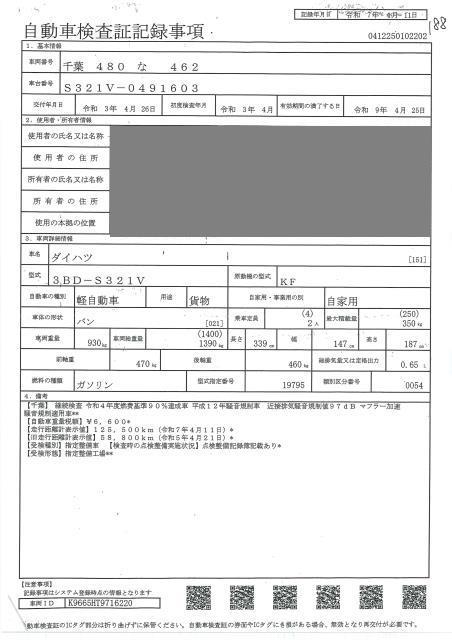 記録年月日 令和 7年 4月 11日
188
自動車検査証記録事項
0412250102202
1. 基本情報
車両番号 千葉 480 な 462
車台番号 S321V-0491603
交付年月日 令和 3年 4月 26日 初度検査年月 令和 3年 4月 有効期間の満了する日 令和 9年 4月 25日
2. 使用者・所有者情報
使用者の氏名又は名称
使用者の住所
所有者の氏名又は名称
所有者の住所
使用の本拠の位置
3. 車両詳細情報
車名 ダイハツ [151]
型式 3BD-S321V 原動機の型式 KF
自動車の種別 軽自動車 用途 貨物 自家用・事業用の別 自家用
車体の形状 バン [021] 乗車定員 (4) 2人 最大積載量 (250) 350kg
車両重量 930kg 車両総重量 (1400) 1390kg 長さ 339cm 幅 147cm 高さ 187cm
前軸重 470kg 後軸重 460kg 総排気量又は定格出力 0.65 L
燃料の種類 ガソリン 型式指定番号 19795 類別区分番号 0054
4. 備考
【千葉】 継続検査 令和4年度燃費基準90%達成車 平成12年騒音規制車 近接排気騒音規制値97dB マフラー加速
騒音規制適用車**
【自動車重量税額】¥6,600*
【走行距離計表示値】125,500km(令和7年4月11日)*
【旧走行距離計表示値】58,800km(令和5年4月21日)*
【受検種別】指定整備車 【検査時の点検整備実施状況】点検整備記録簿記載あり*
【受検形態】指定整備工場**
【注意事項】
記録事項はシステム登録時点の情報となります
車両ID K9665HT9716220
自動車検査証のICタグ部分は折り曲げずに保管ください。自動車検査証の券面やICタグにき損がある場合、無効となり再交付が必要です。